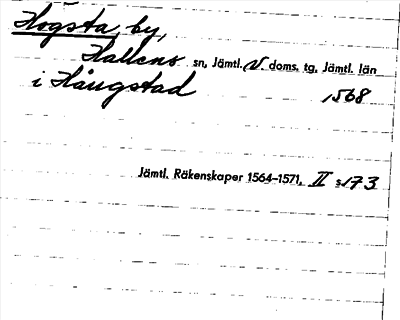 Högsta, by,
Hallens sn, Jämtl. V. doms. tg, Jämtl. län
i Håugstad 1568
Jämtl. Räkenskaper 1564-1571, II s. 173